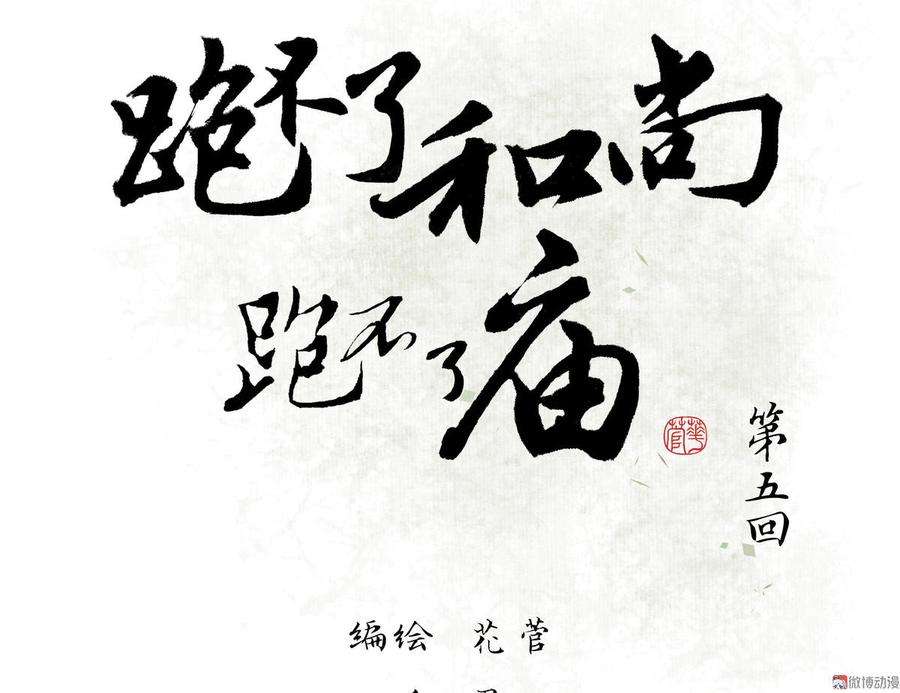 跑不了和尚
跑不了庙
華菅
第五回
编绘 花菅
微博动漫